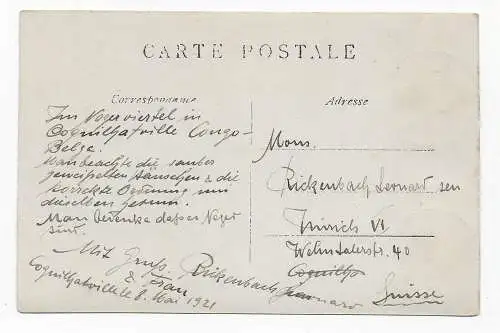 CARTE POSTALE
Correspondance
Adresse
Im Negerviertel in
Coquilhatville Congo-
Belge.
Man beachte die sauber
geweisselten Häuschen & die
korrekte Ordnung um
dieselben herum.
Man bedenke dass es Neger
sind.
Mit Gruss Rickenbach
& Frau
Coquilhatville 8. Mai 1921
Mons.
Rickenbach Leonard sen
Zürich VI
Wehntalerstr. 40
Suisse